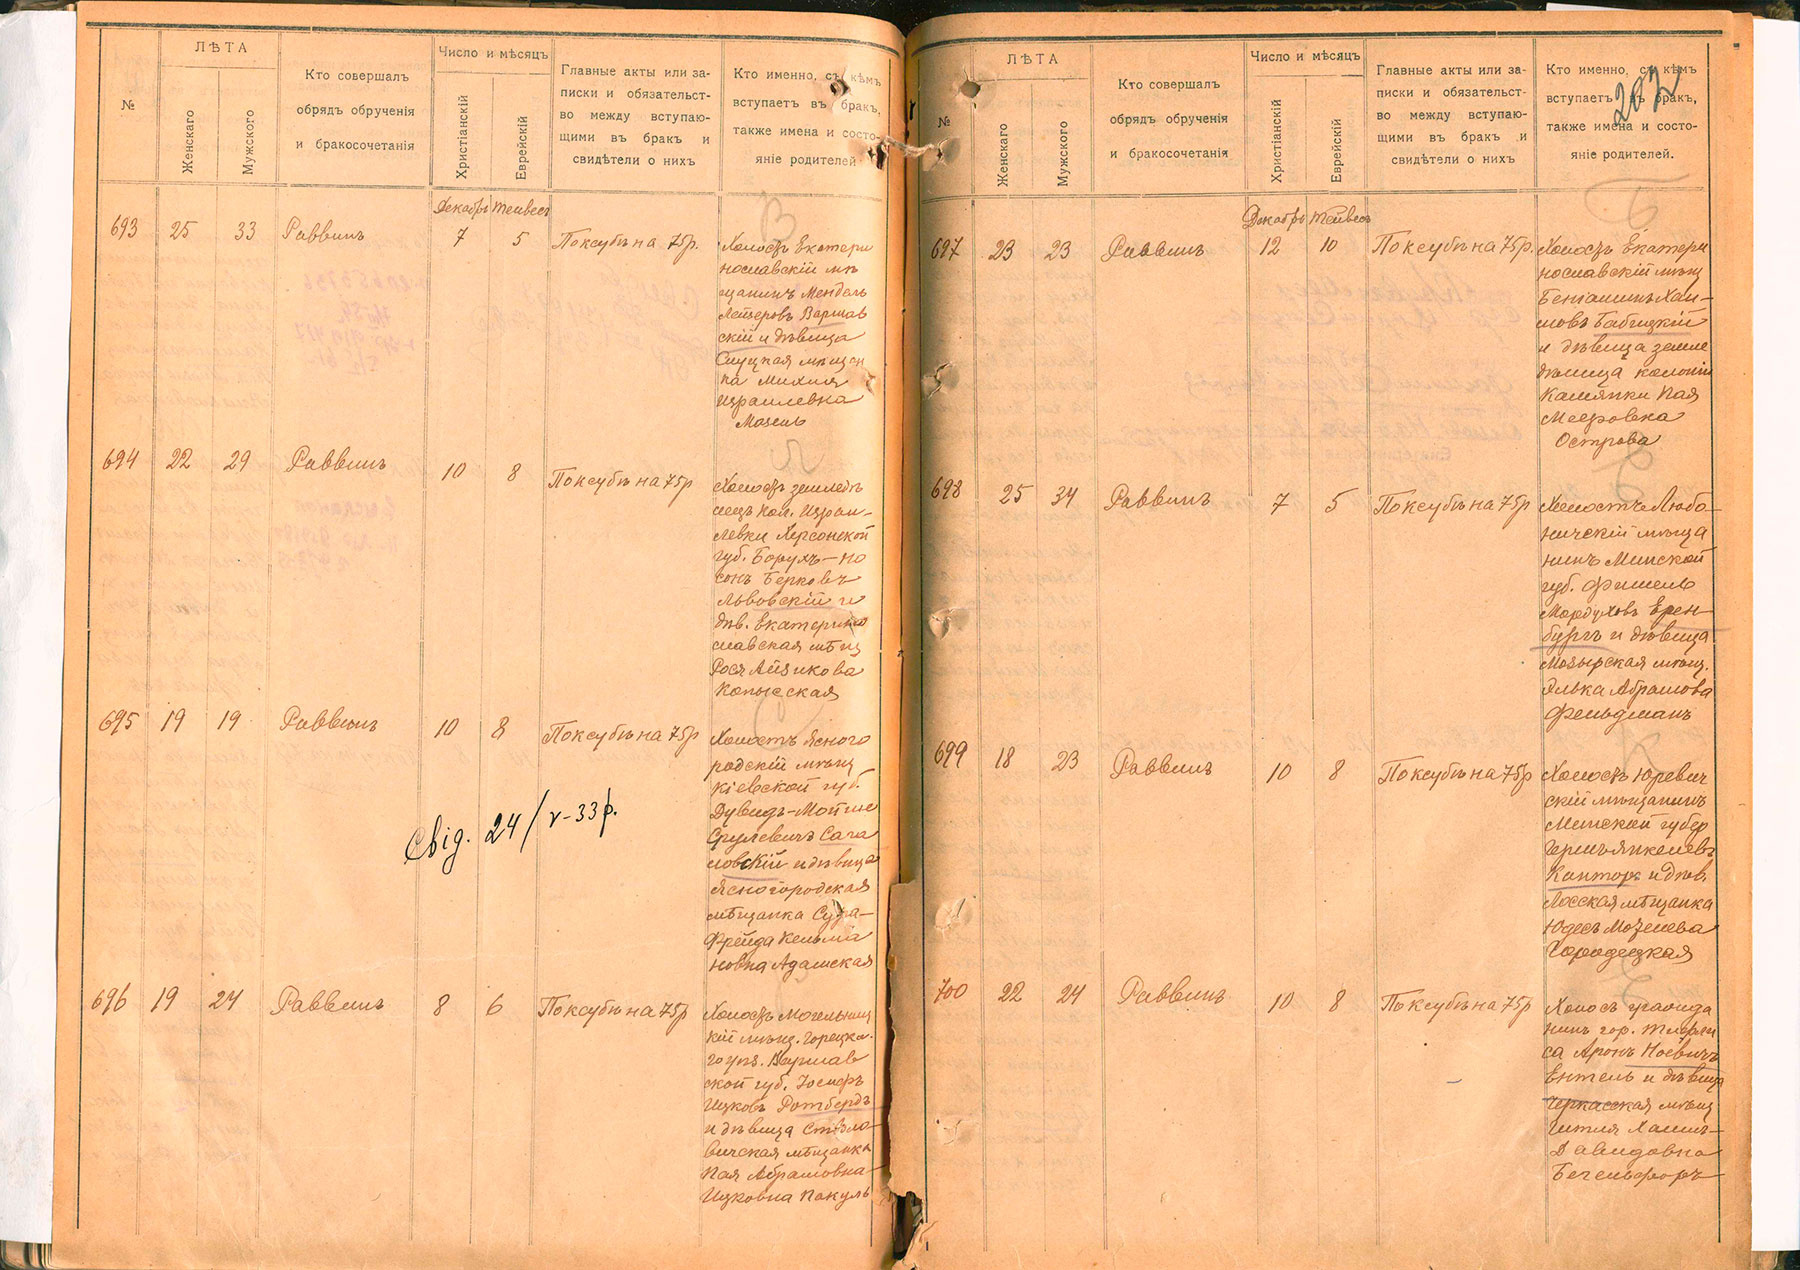 №
ЛѢТА
Женскаго
Мужского
Кто совершалъ
обрядъ обрученія
и бракосочетанія
Число и мѣсяцъ
Христіанскій
Еврейскій
Главные акты или за-
писки и обязательст-
во между вступаю-
щими въ бракъ и
свидѣтели о нихъ
Кто именно, съ кѣмъ
вступаетъ въ бракъ,
также имена и состо-
яніе родителей
Декабрь Тейвесъ
693 25 33 Раввинъ 7 5 По ксубѣ на 75 р.
Холостъ Екатери
нославскій мѣ
щанинъ Мендель
Лейзеровъ Варшав
скій и дѣвица
Слуцкая мѣщан
ка Михля
Израилевна
Мозель
694 22 29 Раввинъ 10 8 По ксубѣ на 75 р
Холостъ землед
лецъ кол. Израи-
левки Херсонской
губ. Борухъ-Но
сонъ Берковъ
Львовскій и
дѣв. Екатерино
славская мѣщ
Рося Айзикова
Копысская
695 19 19 Раввинъ 10 8 По ксубѣ на 75 р
Холостъ Ясного
родскій мѣщ
Кіевской губ.
Дувидъ-Мотле
Срулевичъ Сага
ловскій и дѣвица
Ясногородская
мѣщанка Сура-
Фрейда Кельма
новна Адамская
Свід. 24/v-33 р.
696 19 24 Раввинъ 8 6 По ксубѣ на 75 р
Холостъ Могельниц
кій мѣщ. Горецка-
го уѣз. Варшав
ской губ. Іосифъ
Ицковъ Ротбердъ
и дѣвица Стволо-
вичская мѣщанка
Пая Абрамовна-
Ицковна Пакуль
202
№
ЛѢТА
Женскаго
Мужского
Кто совершалъ
обрядъ обрученія
и бракосочетанія
Число и мѣсяцъ
Христіанскій
Еврейскій
Главные акты или за-
писки и обязательст-
во между вступаю-
щими въ бракъ и
свидѣтели о нихъ
Кто именно, съ кѣмъ
вступаетъ въ бракъ,
также имена и состо-
яніе родителей.
Декабрь Тейвесъ
697 23 23 Раввинъ 12 10 По ксубѣ на 75 р.
Холостъ Екатери
нославскій мѣщ
Беніаминъ Хаи-
мовъ Бабицкій
и дѣвица земле
дѣлица колоніи
Камянки Пая
Мееровна
Острова
698 25 34 Раввинъ 7 5 По ксубѣ на 75 р
Холостъ Любо-
ничскій мѣща
нинъ Минской
губ. Фишель
Мордуховъ Ерен-
бургъ и дѣвица
Мозырская мѣщ.
Элька Абрамова
Фельдманъ
699 18 23 Раввинъ 10 8 По ксубѣ на 75 р
Холостъ Юревич
скій мѣщанинъ
Минской губер
Гершъ Янкелевъ
Канторъ и дѣв.
Лосская мѣщанка
Юдесъ Мозелева
Городецкая
700 22 24 Раввинъ 10 8 По ксубѣ на 75 р
Холостъ гражда
нинъ гор. Тифли
са Аронъ Ноевичъ
Ентель и дѣвица
Черкасская мѣщ
Гитля Хаимъ-
Давидовна
Бегельфоръ